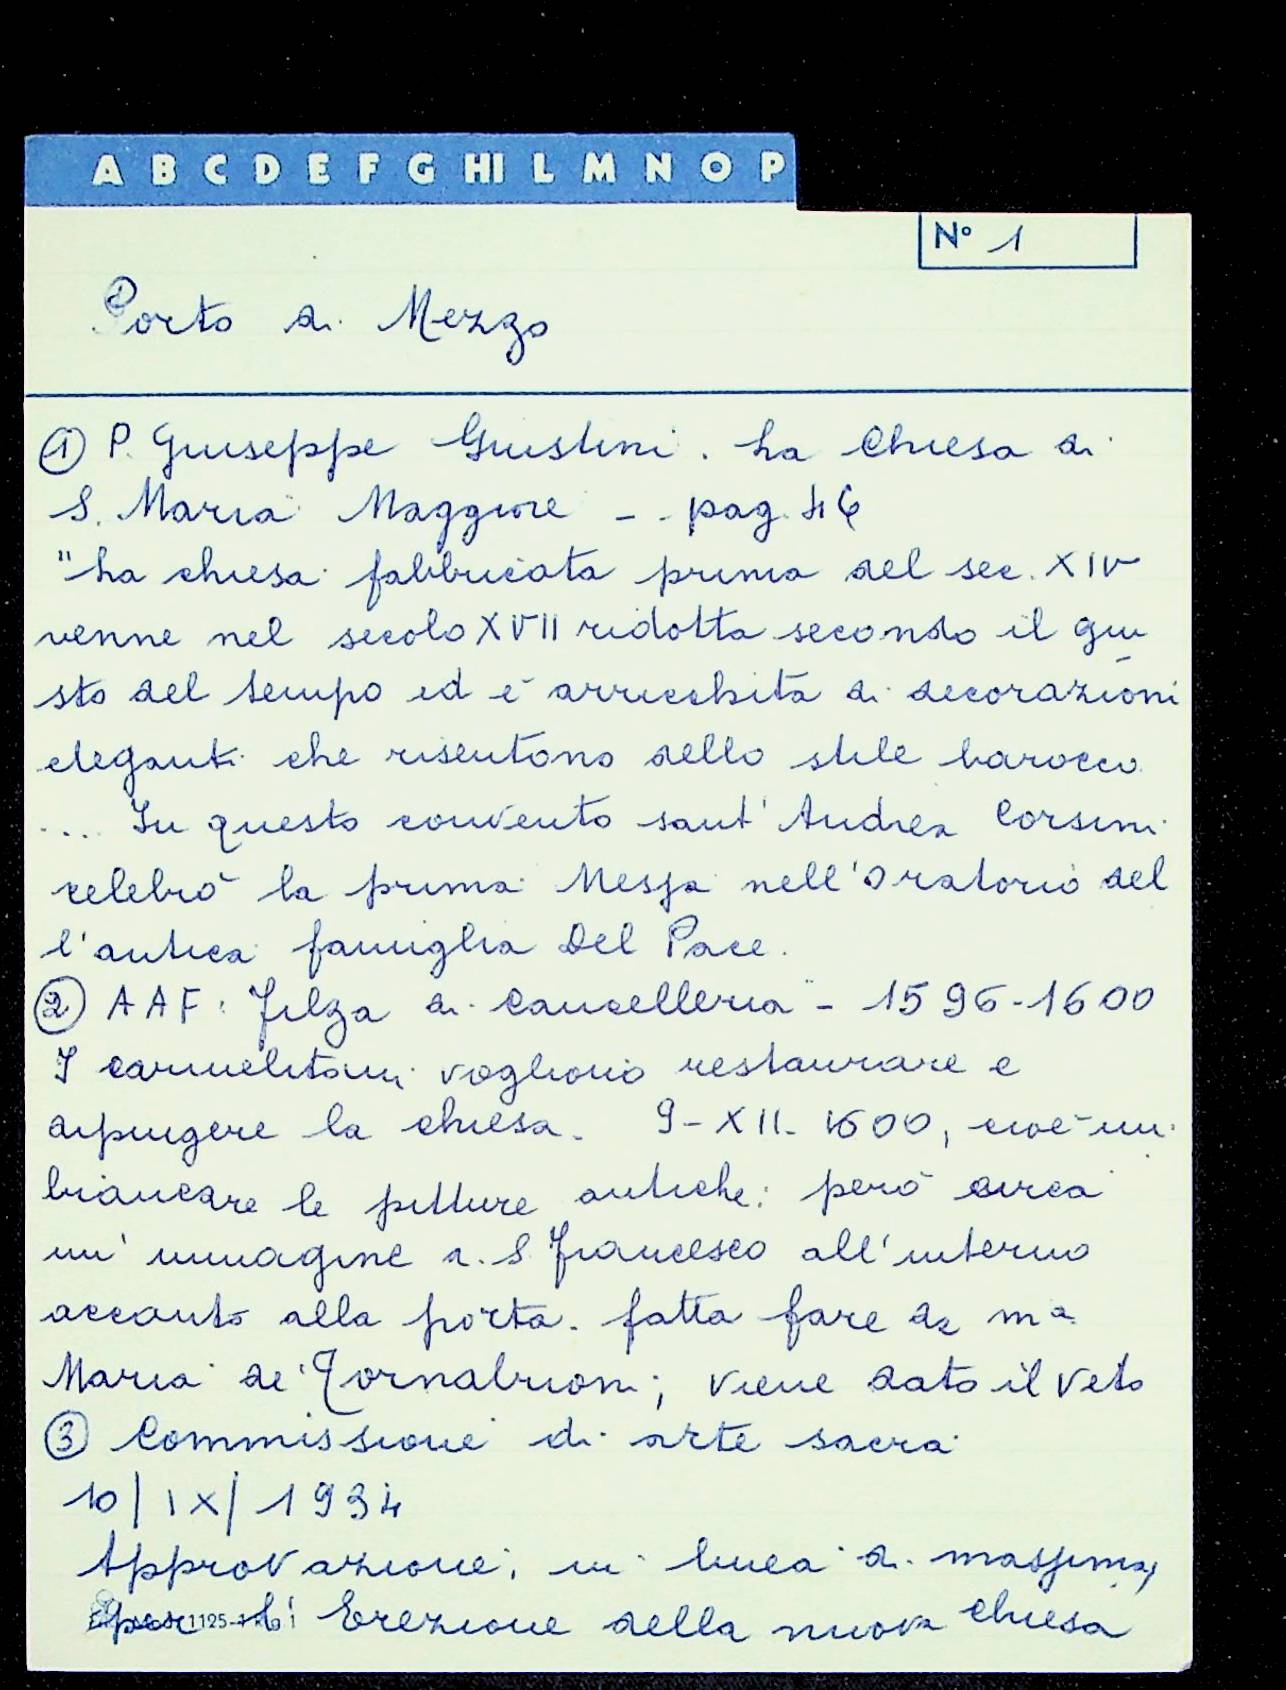 A B C D E F G HI L M N O P
N° 1
Porto di Mezzo
① P. Giuseppe Giustini. La Chiesa di
S. Maria Maggiore - - pag. 46
"La chiesa fabbricata prima del sec. XIV
venne nel secolo XVII ridotta secondo il gui
sto del tempo ed è arricchita di decorazioni
eleganti che risentono dello stile barocco
.... In questo convento sant'Andrea Corsini
celebrò la prima Messa nell'Oratorio del
l'antica famiglia Del Pace.
② AAF: Filza di Cancelleria - 1596-1600
I carmelitani vogliono restaurare e
dipingere la chiesa. 9-XII-1600, cioè im
biancare le pitture antiche: però circa
un'immagine di S. Francesco all'interno
accanto alla porta. fatta fare da mª
Maria de' Tornabuoni; viene dato il veto
③ Commissione di arte sacra
10/IX/1934
Approvazione, in linea di massima,
per l'Erezione della nuova Chiesa